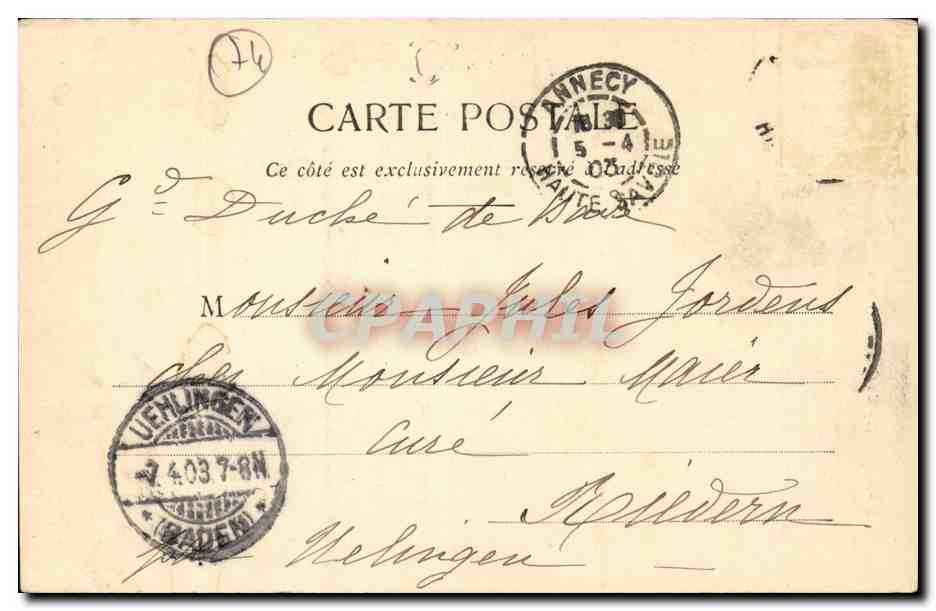 74
CARTE POSTALE
Ce côté est exclusivement réservé à l'adresse
ANNECY
5 -4
03
HAUTE SAVOIE
Gd Duché de Bade
Monsieur Jules Jordens
chez Monsieur Maier
curé
Riedern
par Uelingen
UEHLINGEN
-7.4.03.7-8N
(BADEN)
CPAPHIL